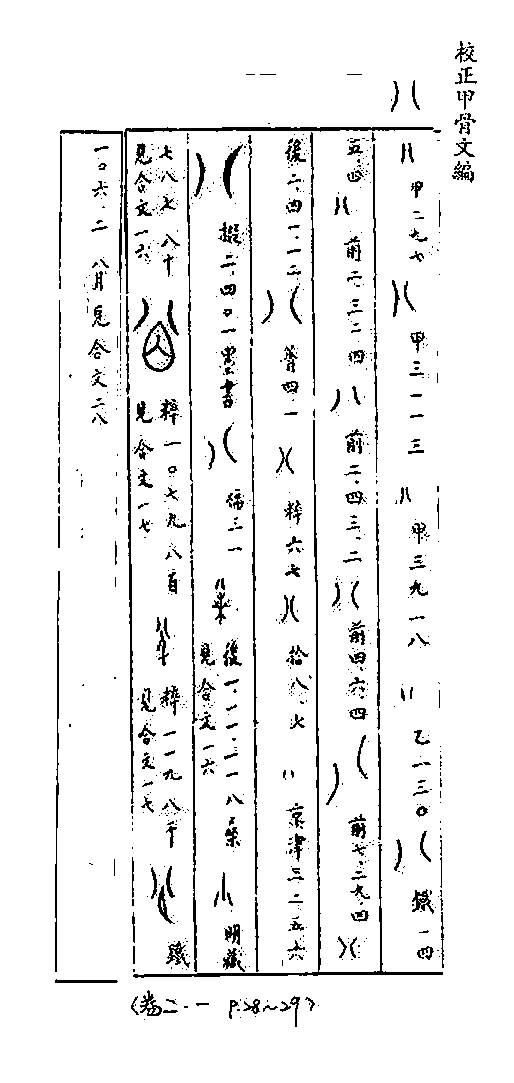 校正甲骨文編
八 甲二九七 甲三一一三 甲三九一八 乙一三〇 鐵一四
五.四 前二.三二.四 前二.四三.二 前四.六.四 前七.二九.四
後二.四一.一二 菁四.一 粹六七 拾八.火 京津三二五六
掇二.四〇一墨書 佚三一 後一.一一.一八 八桼 見合文一六 明藏
七八七 八十 見合文一六 粹一〇七九 八百 見合文一七 粹一一九 八千 見合文一七 鐵
一〇六.二 八月見合文二八
(卷二.一 P.28~29)